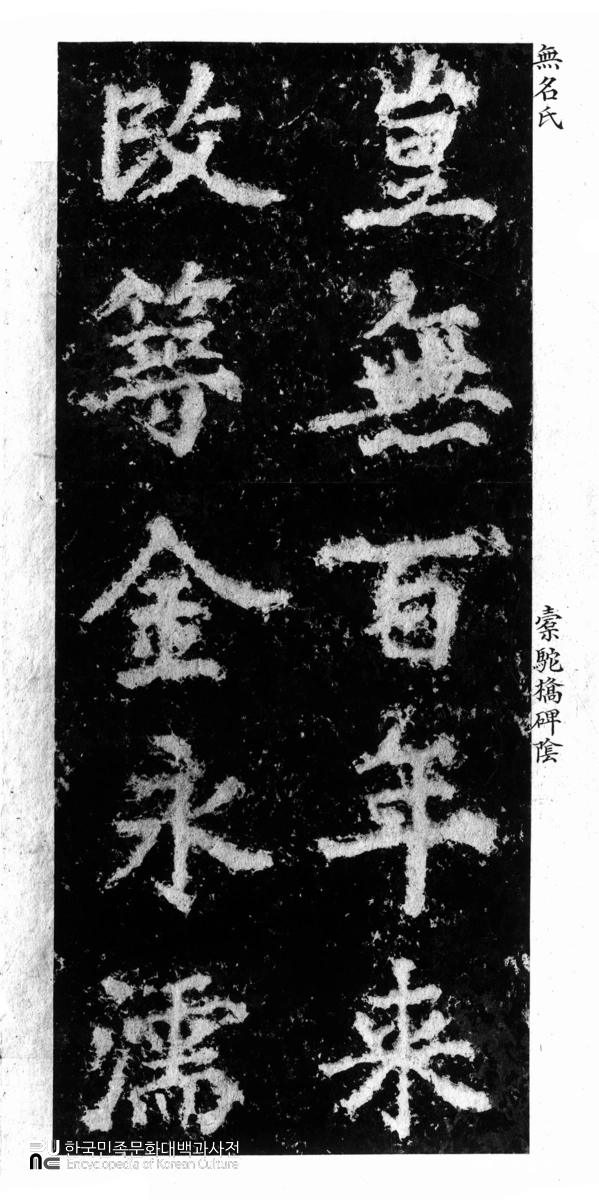 無名氏 橐駝橋碑陰
豈無百年来
改等金永濡
한국민족문화대백과사전
Encyclopedia of Korean Culture